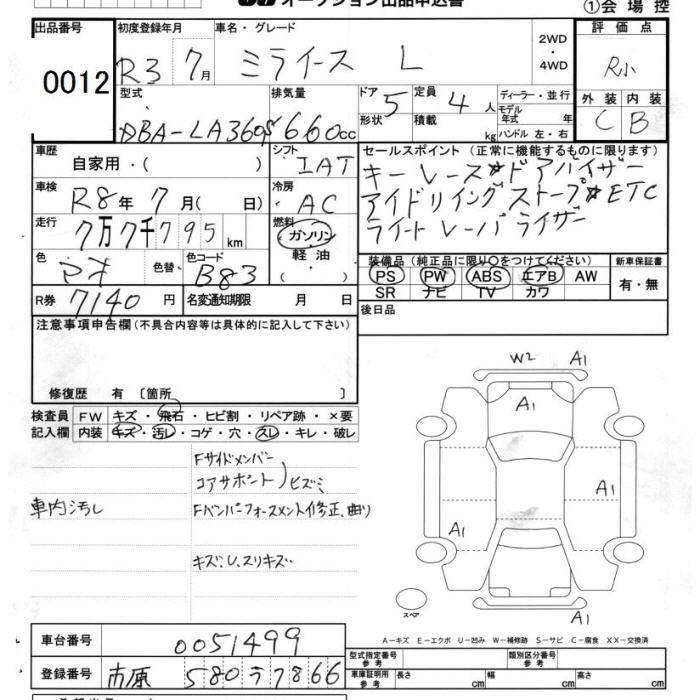 オークション出品申込書
①会場控
出品番号 初度登録年月 車名・グレード 2WD・4WD 評価点
0012 R3 7月 ミライース L R小
型式 排気量 ドア 定員 ディーラー・並行 外装 内装
DBA-LA360S 660cc 5 4人 モデル年式 年 C B
形状 積載 kg ハンドル 左・右
車歴 シフト セールスポイント (正常に機能するものに限ります)
自家用・( ) IAT キーレス☆ドアバイザー
車検 冷房 アイドリングストップ☆ETC
R8年7月( 日) AC
走行 燃料 ライトレーバライザー
7万7千795km ガソリン
軽油
( ・ )
色 色替 色コード 装備品(純正品に限り〇をつけてください) 新車保証書
B83 PS PW ABS エアB AW 有・無
SR ナビ TV カワ
R券 7140円 名変通知期限 月 日 後日品
注意事項申告欄(不具合内容等は具体的に記入して下さい)
修復歴 有 [箇所 ]
検査員記入欄 FW キズ・飛石・ヒビ割・リペア跡・×要
内装 キズ・汚レ・コゲ・穴・スレ・キレ・破レ
車内汚し
Fサイドメンバー
コアサポート)ヒズミ
Fバンパーフォースメント修正、曲り
キズ、U、スリキズ
W2 A1
A1
A1
A1
A1
スペア
A-キズ E-エクボ U-凹み W-補修跡 S-サビ C-腐食 XX-交換済
車台番号 0051499
登録番号 市原 580 ラ 7866
型式指定番号 参考 類別区分番号 参考
車庫証明用 参考 長さ cm 幅 cm 高さ cm